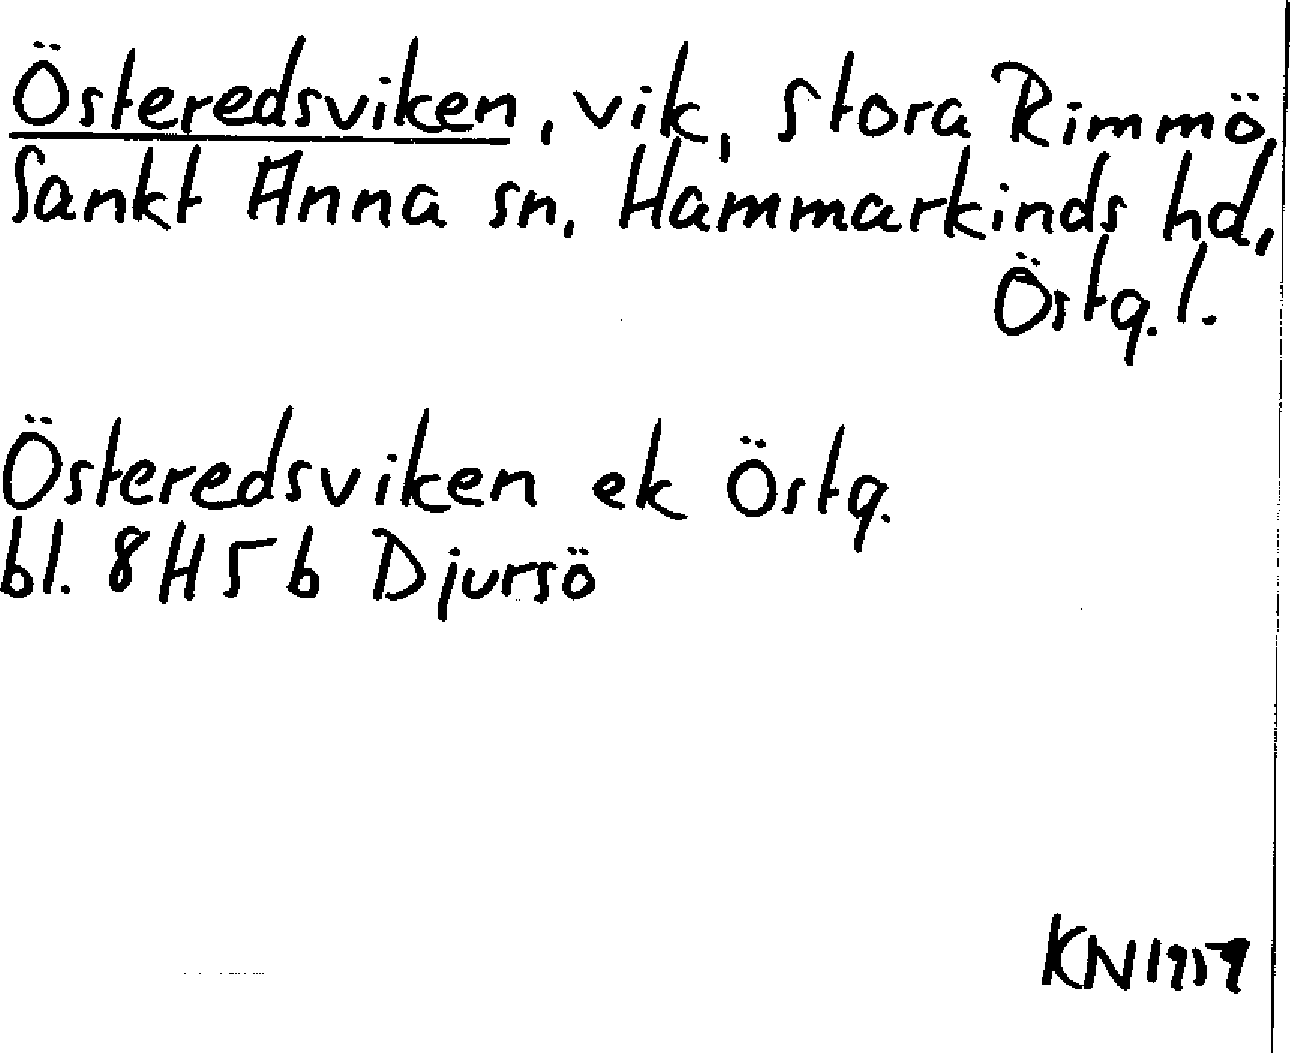 Österedsviken, vik, Stora Rimmö,
Sankt Anna sn, Hammarkinds hd,
Östg. l.
Österedsviken ek Östg.
bl. 8H5b Djursö
KN1959